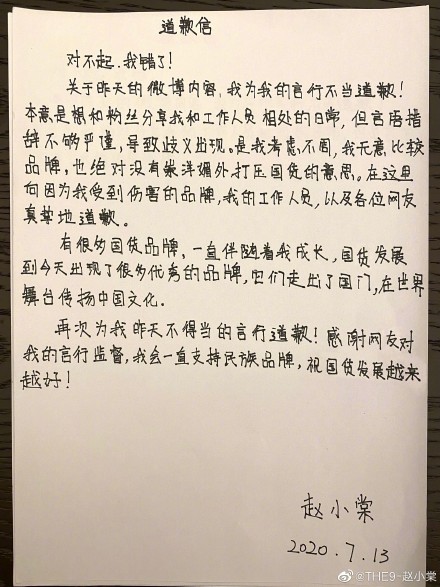 道歉信
对不起.我错了！
关于昨天的微博内容,我为我的言行不当道歉！
本意是想和粉丝分享我和工作人员相处的日常,但言语措
辞不够严谨,导致歧义出现。是我考虑不周,我无意比较
品牌,也绝对没有崇洋媚外打压国货的意思。在这里
向因为我受到伤害的品牌,我的工作人员,以及各位网友
真挚地道歉。
有很多国货品牌,一直伴随着我成长,国货发展
到今天出现了很多优秀的品牌,它们走出了国门,在世界
舞台传扬中国文化.
再次为我昨天不得当的言行道歉！感谢网友对
我的言行监督,我会一直支持民族品牌,祝国货发展越来
越好！
赵小棠
2020.7.13
@THE9-赵小棠